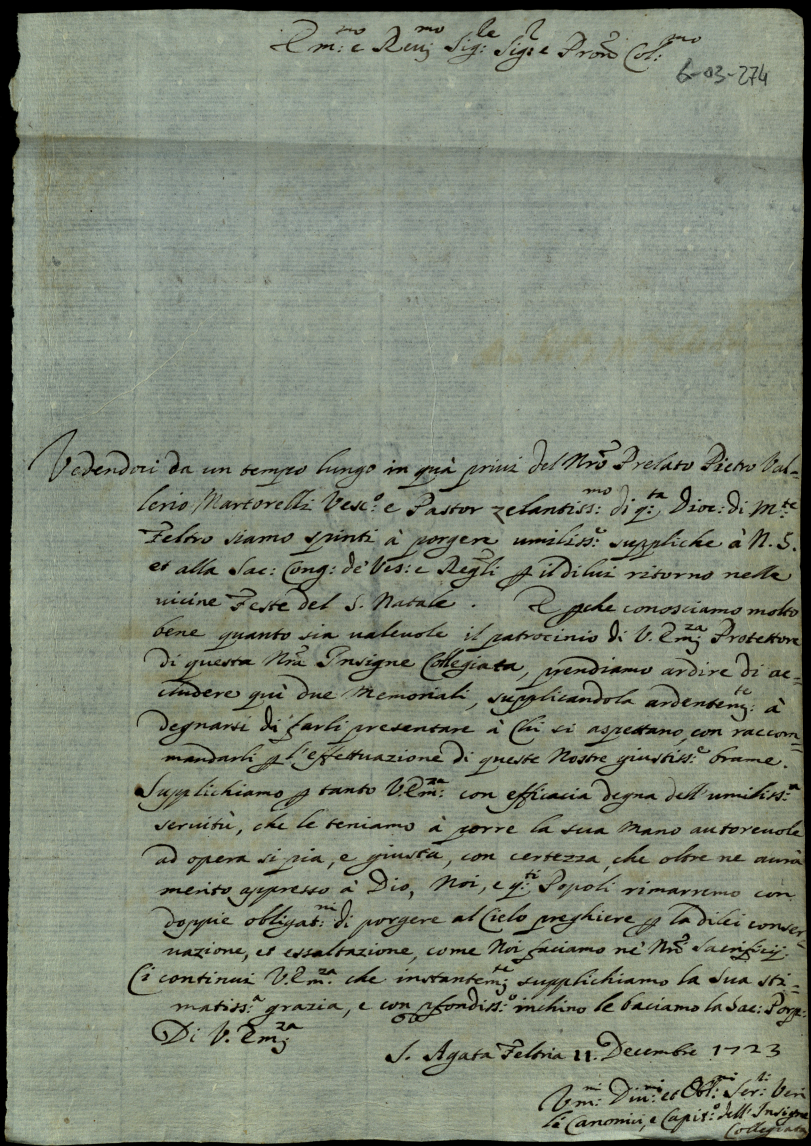 Em:mo e Reu:mo Sig:le Sig:e Pron Col:mo
6-03-274
Vedendoci da un tempo lungo in quà priui del Nrõ Prelato Pietro Val=
lerio Martorelli Vesc:o e Pastor zelantiss:mo di q:ta Dioc: di M:te
Feltro siamo spinti à porgere umiliss:e suppliche à N. S.
et alla Sac: Cong: de' Ves: e Reg:li p il di lui ritorno nelle
uicine Feste del S. Natale. E pche conosciamo molto
bene quanto sia ualeuole il patrocinio di V. Em:za Protettore
di questa Nrã Insigne Collegiata, prendiamo ardire di ac=
cludere quì due Memoriali, supplicandola ardentem:te à
degnarsi di farli presentare à Chi si aspettano, con raccom=
mandarli p l'effettuazione di queste Nostre giustiss:e brame.
Supplichiamo p tanto V. Em:za con efficacia degna dell'umiliss:a
seruitù, che le teniamo à porre la sua Mano autoreuole
ad opera si pia, e giusta, con certezza, che oltre ne aurà
merito appresso à Dio, Noi, e q:ti Popoli rimarremo con
doppie obligat:ni di porgere al Cielo preghiere p la di lei conser=
uazione, et essaltazione, come Noi faciamo ne' Nrĩ Sacrificij.
Ci continui V. Em:za che instantem:te supplichiamo la Sua sti=
matiss:a grazia, e con pfondiss:o inchino le baciamo la Sac: Porp:
Di V. Em:za
S. Agata Feltria 11. Decembre 1723
Vm:mi Diu:mi et Obl:mi Ser:ti Veri
li Canonici, e Capit:o dell'Insigne
Collegiata